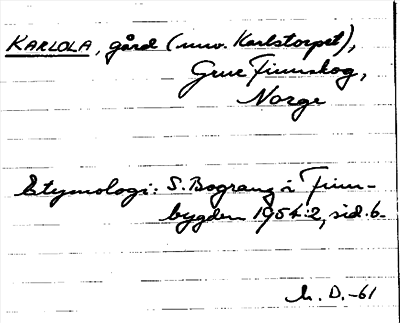 KARLOLA, gård (nuv. Karlstorpet),
Grue Finnskog,
Norge
Etymologi: S. Bograng i Finn-
bygden 1954:2, sid. 6.
h. D.-61